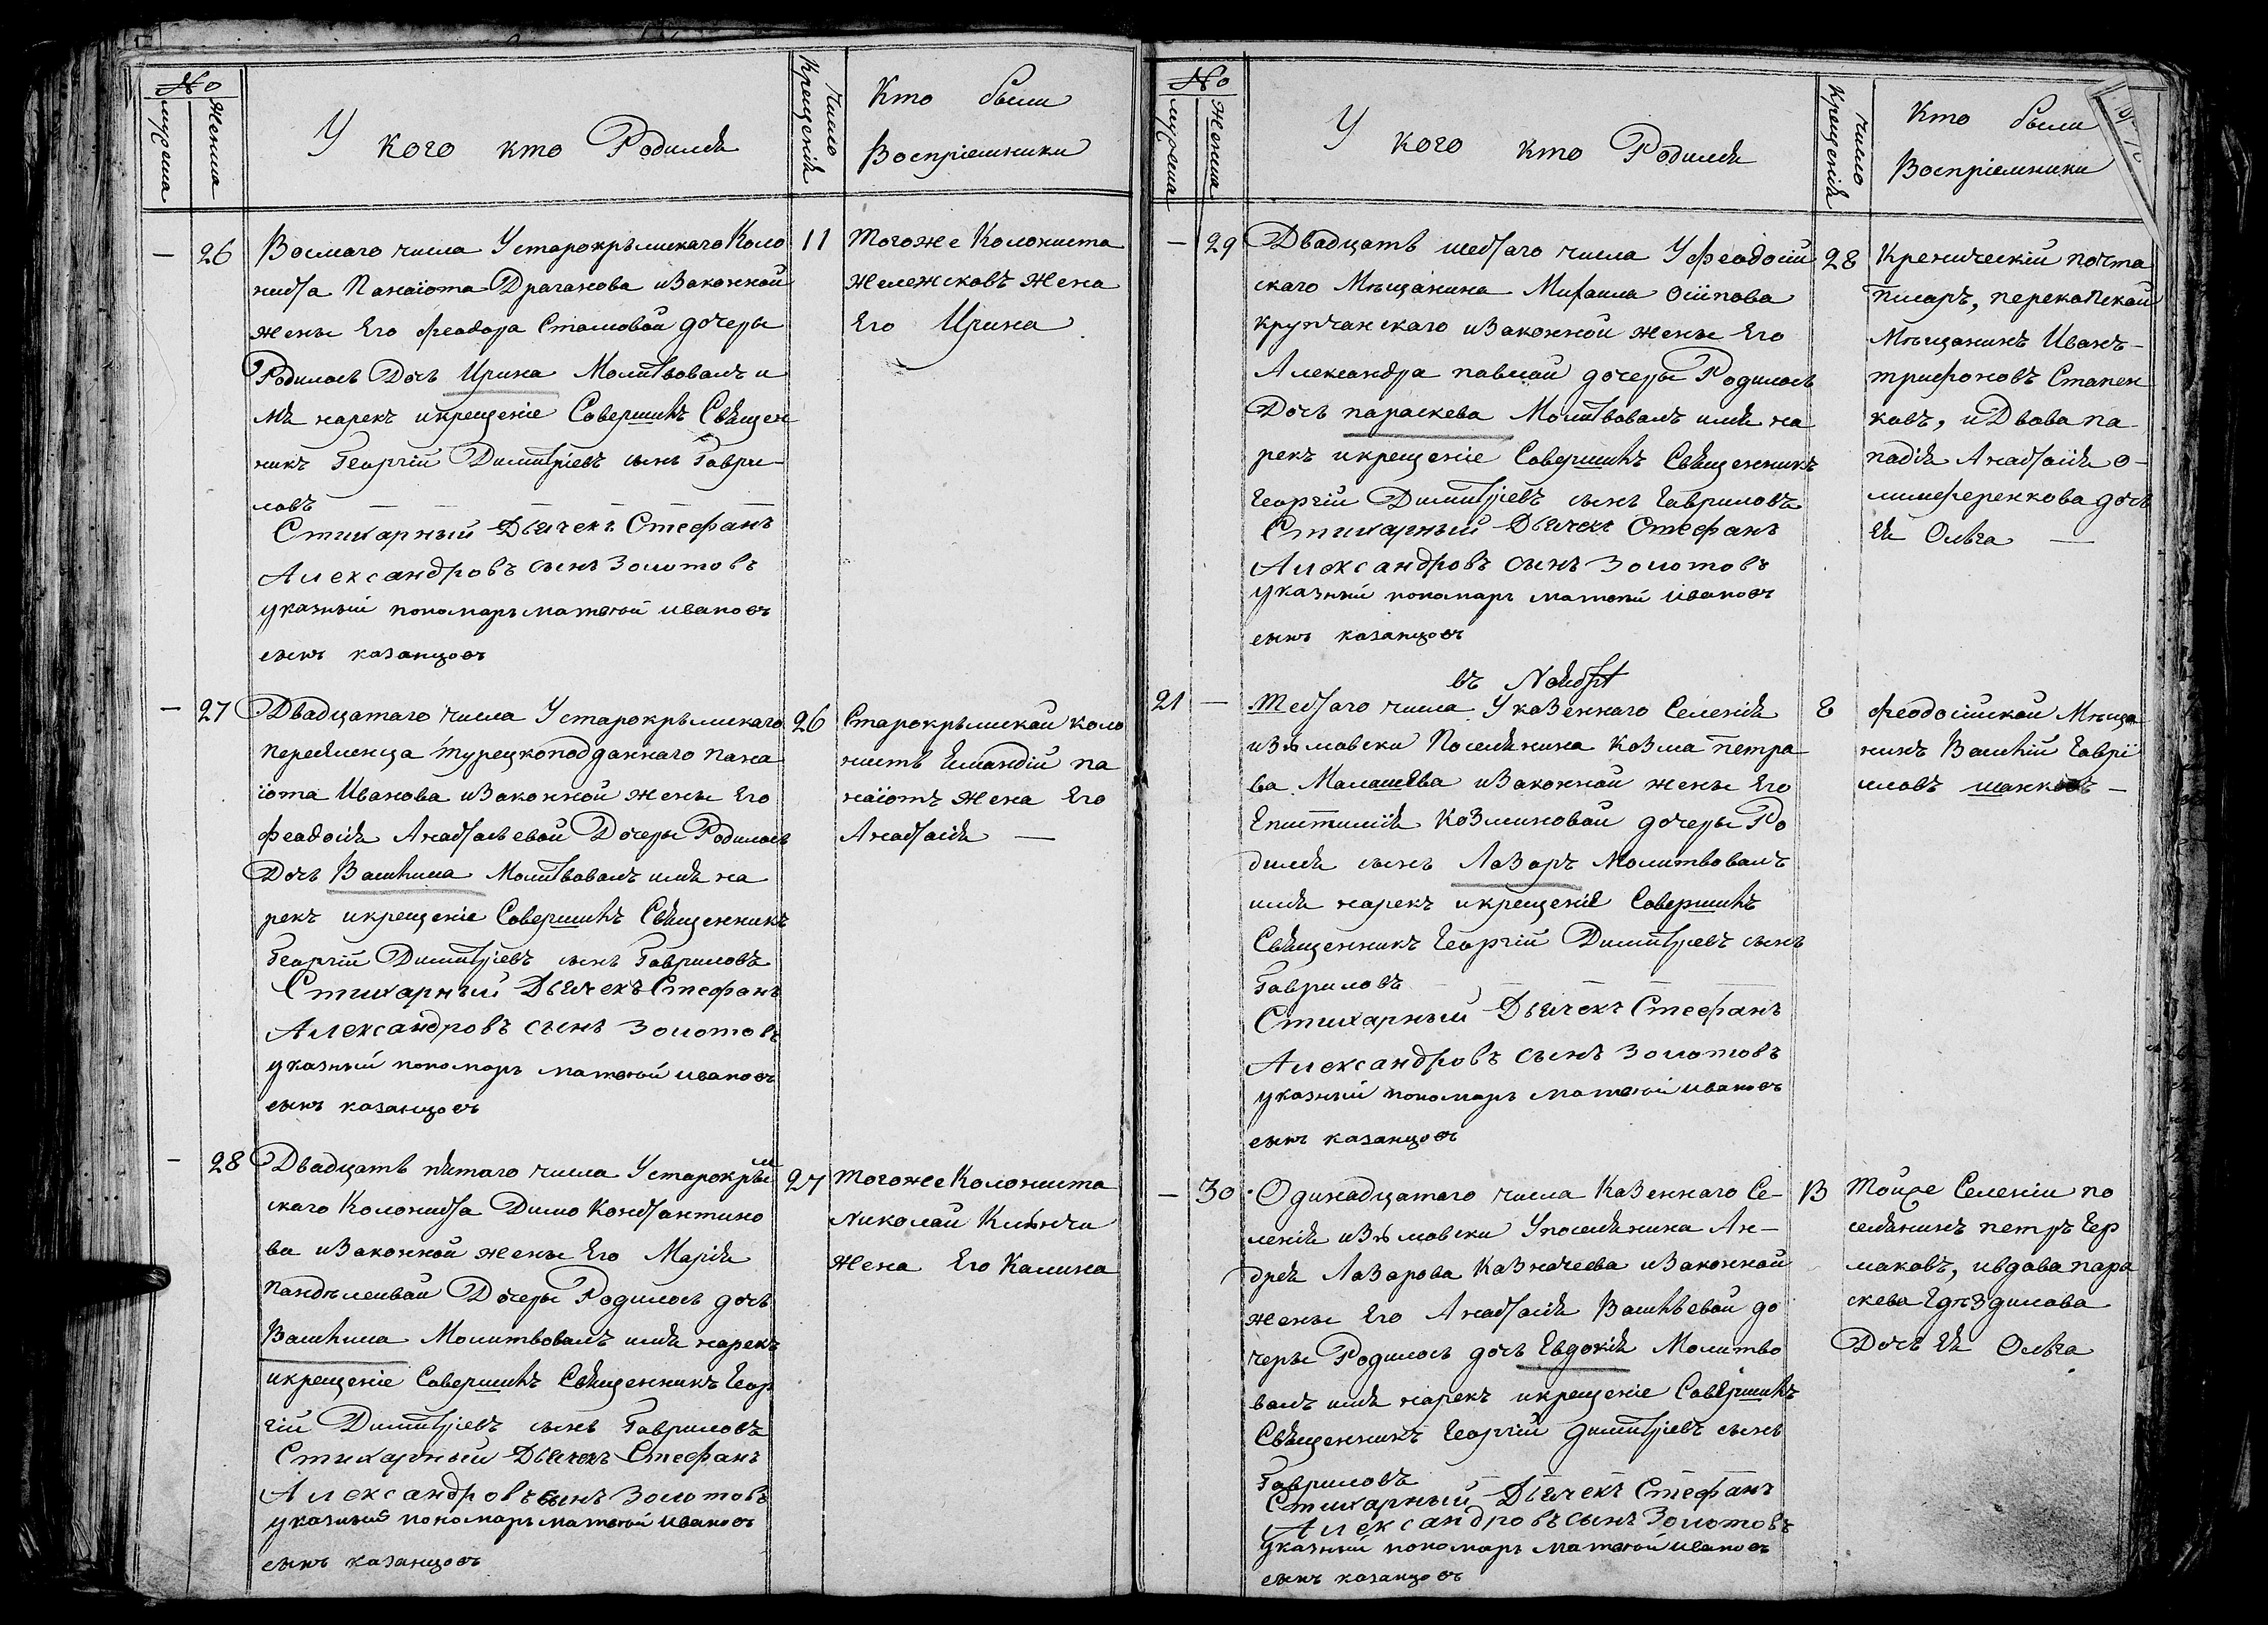 №
мужеска
Женска
У кого кто Родился
число
Крещенія
Кто были
Воспріемники
— 26
Восмаго числа Устарокрымскаго Коло
ниста Панаіота Драганова изаконной
жены Его феодора Стамовой дочеры
Родилась Дочь Ирина Молитвовалъ и
мя нарекъ икрещеніе Совершилъ Священ
никъ Георгій Димитріевъ сынъ Гаври-
ловъ — — — —
Стихарный Дьячекъ Стефанъ
Александровъ сынъ Золотовъ
указный пономарь матвей ивановъ
сынъ казанцовъ
11
Тогоже Колониста
Жележсковъ Жена
Его Ирина
— 27
Двадцатаго числа Устарокрымскаго
переселенца турецкоподданнаго пана
іота Иванова изаконной жены Его
феодосія Анастасьевой Дочеры Родилась
Дочь Василиса Молитвовалъ имя на
рекъ икрещеніе Совершилъ Священникъ
Георгій Димитріевъ сынъ Гавриловъ
Стихарный Дьячекъ Стефанъ
Александровъ сынъ Золотовъ
указный пономарь матвей ивановъ
сынъ казанцовъ
26
Старокрымской коло
нистъ па
наіотъ Жена Его
Анастасія —
— 28
Двадцать пятаго числа Устарокрым
скаго Колониста Димо Константино
ва изаконной жены Его Марія
Дочеры Родилась дочь
Василиса Молитвовалъ имя нарекъ
икрещеніе Совершилъ Священникъ Геор
гій Димитріевъ сынъ Гавриловъ
Стихарный Дьячекъ Стефанъ
Александровъ сынъ Золотовъ
указный пономарь матвей ивановъ
сынъ казанцовъ
27
Тогоже Колониста
Николай
Жена Его Калина
№
мужеска
Женска
У кого кто Родился
число
Крещенія
Кто были
Воспріемники
— 29
Двадцать шестаго числа У феодосій
скаго Мѣщанина Михаила Осіпова
крупчанскаго изаконной жены Его
Александра павлой дочеры Родилась
Дочь параскева Молитвовалъ имя на
рекъ икрещеніе Совершилъ Священникъ
Георгій Димитріевъ сынъ Гавриловъ
Стихарный Дьячекъ Стефанъ
Александровъ сынъ Золотовъ
указный пономарь матвей ивановъ
сынъ казанцовъ
28
почта
писарь, перекопской
Мѣщанинъ Иванъ-
трифоновъ Стапен
ковъ, и Двова па
падія Анастасія О-
дочь
Ея Ольга —
въ Ноябрѣ
21 —
Шестаго числа Указеннаго Селенія
изюмовски Поселянина козма петра
ва Малашева изаконной жены Его
Епистимія козминовой дочеры Ро
дился сынъ Лазарь Молитвовалъ
имя нарекъ икрещеніе Совершилъ
Священникъ Георгій Димитріевъ сынъ
Гавриловъ — — — —
Стихарный Дьячекъ Стефанъ
Александровъ сынъ Золотовъ
указный пономарь матвей ивановъ
сынъ казанцовъ
8
феодосійской Мѣща
нинъ Василій Гаврі
иловъ —
— 30
Одинадцатаго числа Казеннаго Се-
ленія изюмовски Упоселянина Ан-
дрея Лазарова Казначеева изаконной
жены Его Анастасія Васильевой до
черы Родилась дочь Евдокія Молитво
валъ имя нарекъ икрещеніе Совершилъ
Священникъ Георгій димитріевъ сынъ
Гавриловъ
Стихарный Дьячекъ Стефанъ
Александровъ сынъ Золотовъ
указный пономарь матвей ивановъ
сынъ казанцовъ
13
Тойже Селеніи по
селянинъ петръ Ер
маковъ, ивдова пара
скева
Дочь Ея Ольга